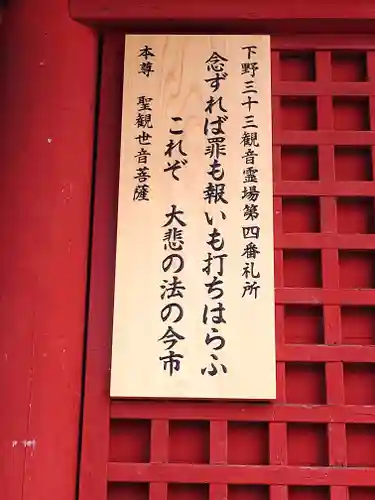 下野三十三観音霊場第四番札所
念ずれば罪も報いも打ちはらふ
これぞ 大悲の法の今市
本尊 聖観世音菩薩